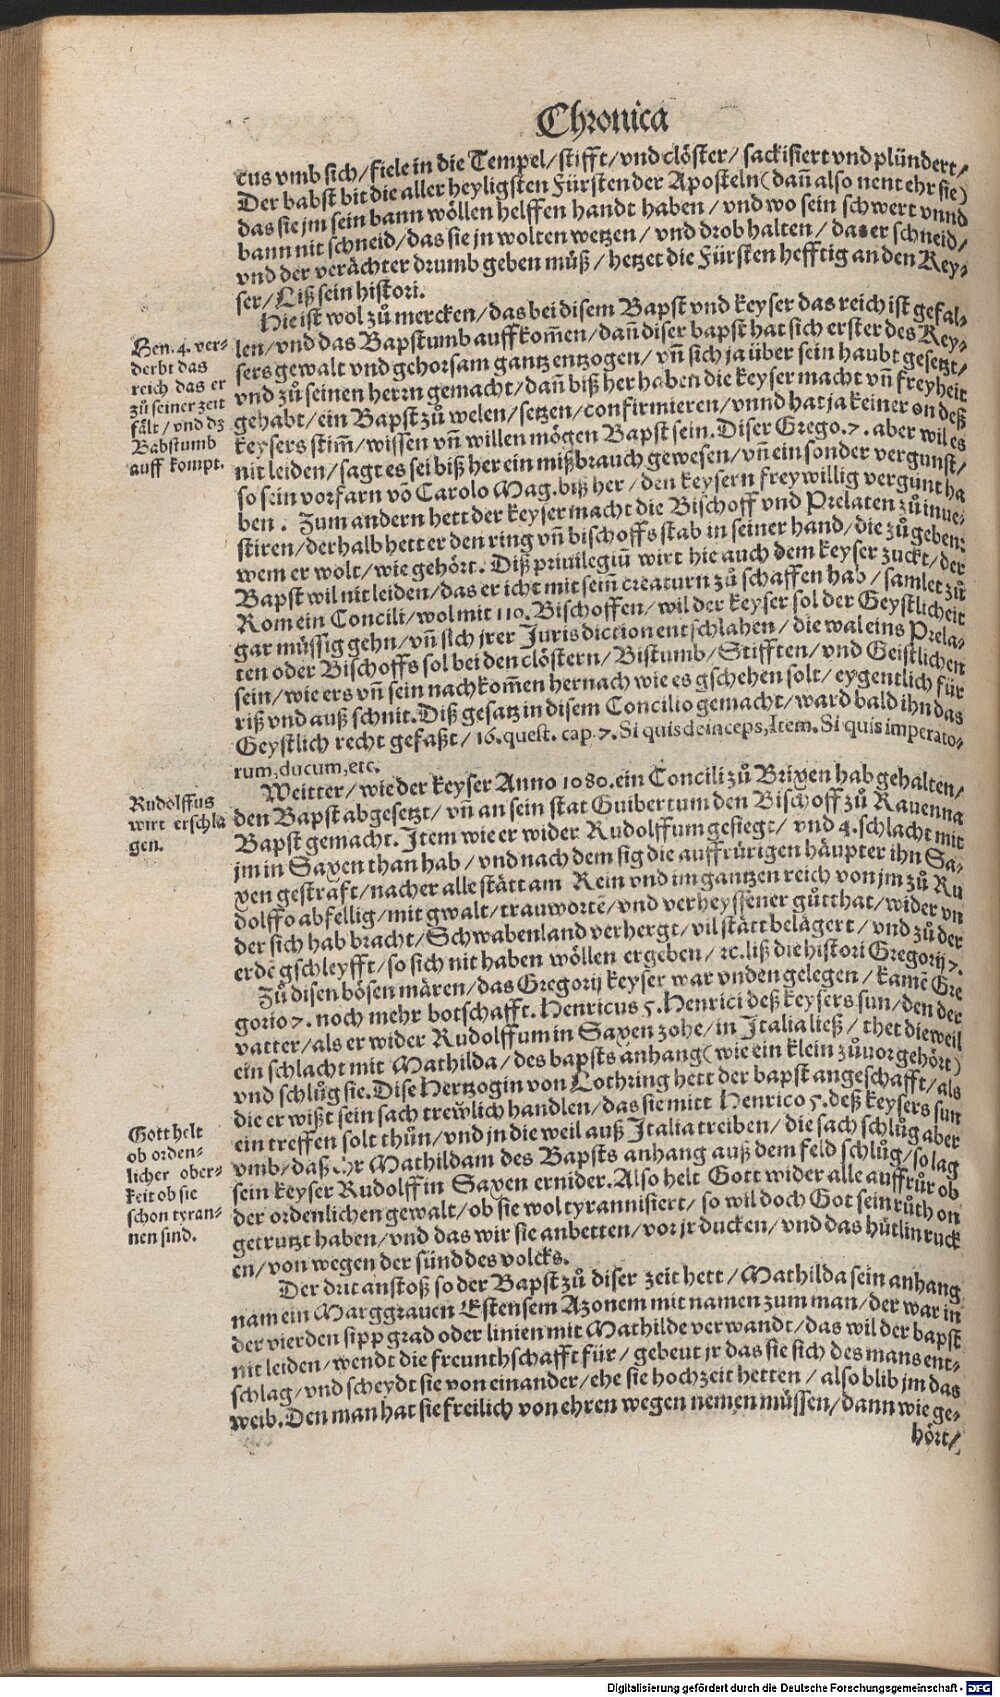 Chronica
cus vmb sich/ fiele in die Tempel/ stifft/ vnd clöster/ sackisiert vnd plündert/
Der babst bit die aller heyligsten Fürsten der Aposteln (dañ also nent ehr sie)
das sie jm sein bann wöllen helffen handt haben/ vnd wo sein schwert vnnd
bann nit schneid/ das sie jn wolten wetzen/ vnd drob halten/ das er schneid/
vnd der verächter drumb geben müß/ hetzet die Fürsten hefftig an den Key-
ser/ Liß sein histori.
Hie ist wol zů mercken/ das bei disem Bapst vnd keyser das reich ist gefal-
len/ vnd das Bapstumb auff kom̃en/ dañ diser bapst hat sich erster des Key-
sers gewalt vnd gehorsam gantz entzogen/ vñ sich ja über sein haubt gesetzt/
vnd zů seinen herrn gemacht/ dañ biß her haben die keyser macht vñ freyheit
gehabt/ ein Bapst zů welen/ setzen/ confirmieren/ vnnd hat ja keiner on deß
keysers stim̃/ wissen vñ willen mögen Bapst sein. Diser Grego. 7. aber wil es
nit leiden/ sagt es sei biß her ein mißbrauch gewesen/ vñ ein sonder vergunst/
so sein vorfarn võ Carolo Mag. biß her/ den keysern freywillig vergunt ha
ben. Zum andern hett der keyser macht die Bischoff vnd Prelaten zů inue-
stiren/ derhalb hett er den ring vñ bischoffs stab in seiner hand/ die zů geben:
wem er wolt/ wie gehört. Diß priuilegiũ wirt hie auch dem keyser zuckt/ der
Bapst wil nit leiden/ das er icht mit sein̄ creaturn zů schaffen hab/ samlet zů
Rom ein Concili/ wol mit 110. Bischoffen/ wil der keyser sol der Geystlicheit
gar müssig gehn/ vñ sich jrer Jurisdiction entschlahen/ die wal eins Prela-
ten oder Bischoffs sol bei den clöstern/ Bistumb/ Stifften/ vnd Geistlichen
sein/ wie ers vñ sein nachkom̃en hernach wie es gschehen solt/ eygentlich für
riß vnd auß schnit. Diß gesatz in disem Concilio gemacht/ ward bald ihn das
Geystlich recht gefaßt/ 16. quest. cap. 7. Si quis deinceps, Item. Si quis imperato-
rum, ducum, etc.
Weitter/ wie der keyser Anno 1080. ein Concili zů Brixen hab gehalten/
den Bapst abgesetzt/ vñ an sein stat Guibertum den Bischoff zů Rauenna
Bapst gemacht. Item wie er wider Rudolffum gesiegt/ vnd 4. schlacht mit
jm in Saxen than hab/ vnd nach dem sig die auffrürigen häupter ihn Sa-
xen gestraft/ nacher alle stätt am Rein vnd im gantzen reich von jm zů Ru
dolffo abfellig/ mit gwalt/ trauwortē/ vnd verheyssener gůtthat/ wider vn
der sich hab bracht/ Schwabenland verhergt/ vil stätt belägert/ vnd zů der
erdē gschleyfft/ so sich nit haben wöllen ergeben/ ꝛc. liß die histori Gregorij 7.
Zů disen bösen mären/ das Gregorij keyser war vnden gelegen/ kamē Gre
gorio 7. noch mehr botschafft. Henricus 5. Henrici deß keysers sun/ den der
vatter/ als er wider Rudolffum in Saxen zohe/ in Italia ließ/ thet dieweil
ein schlacht mit Mathilda/ des bapsts anhang (wie ein klein zůuor gehört)
vnd schlůg sie. Dise Hertzogin von Lothring hett der bapst angeschafft/ als
die er wißt sein sach trewlich handlen/ das sie mitt Henrico 5. deß keysers sun
ein treffen solt thůn/ vnd jn die weil auß Italia treiben/ die sach schlůg aber
vmb/ daß Mathildam des Bapsts anhang auß dem feld schlůg/ so lag
sein keyser Rudolff in Saxen ernider. Also helt Gott wider alle auffrůr ob
der ordenlichen gewalt/ ob sie wol tyrannisiert/ so wil doch Got sein růth on
getrutzt haben/ vnd das wir sie anbetten/ vor jr ducken/ vnd das hůtlin ruck
en/ von wegen der sünd des volcks.
Der drit anstoß so der Bapst zů diser zeit hett/ Mathilda sein anhang
nam ein Marggrauen Estensem Azonem mit namen zum man/ der war in
der vierden sipp grad oder linien mit Mathilde verwandt/ das wil der bapst
nit leiden/ wendt die freunthschafft für/ gebeut jr das sie sich des mans ent-
schlag/ vnd scheydt sie von einander/ ehe sie hochzeit hetten/ also blib jm das
weib. Den man hat sie freilich von ehren wegen nemen müssen/ dann wie ge-
hört/
Hen. 4. ver-
derbt das
reich das er
zů seiner zeit
fält/ vnd dz
Babstumb
auff kompt.
Rudolffus
wirt erschla
gen.
Gott helt
ob orden-
licher ober-
keit ob sie
schon tyran-
nen sind.
Digitalisierung gefördert durch die Deutsche Forschungsgemeinschaft - DFG